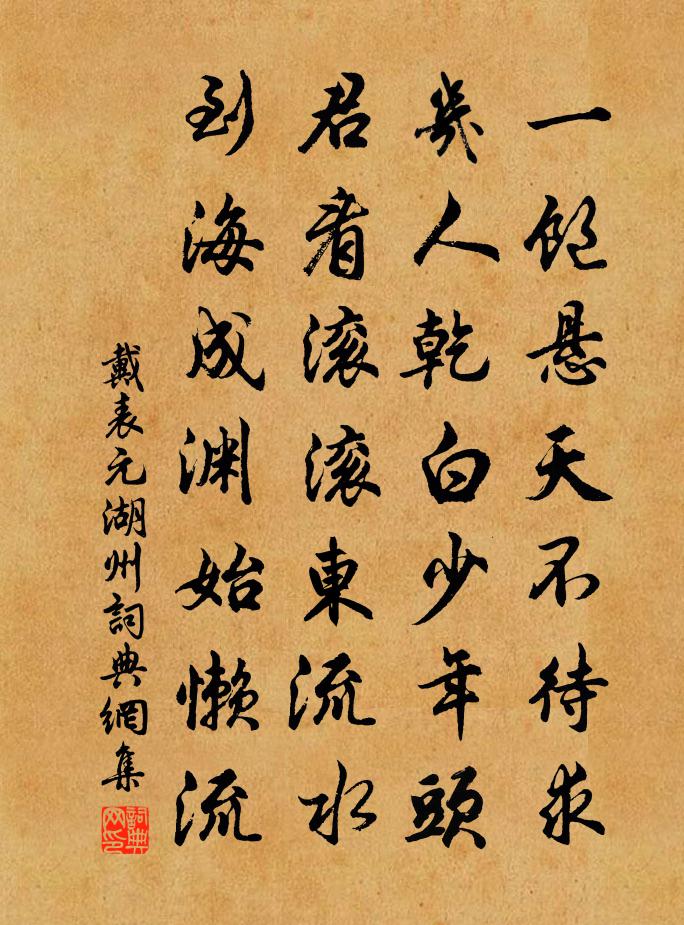 一飽悬天不待求
幾人乾白少年頭
君看滚滚東流水
到海成渊始懒流
戴表元湖州詞典網集
詞典网印